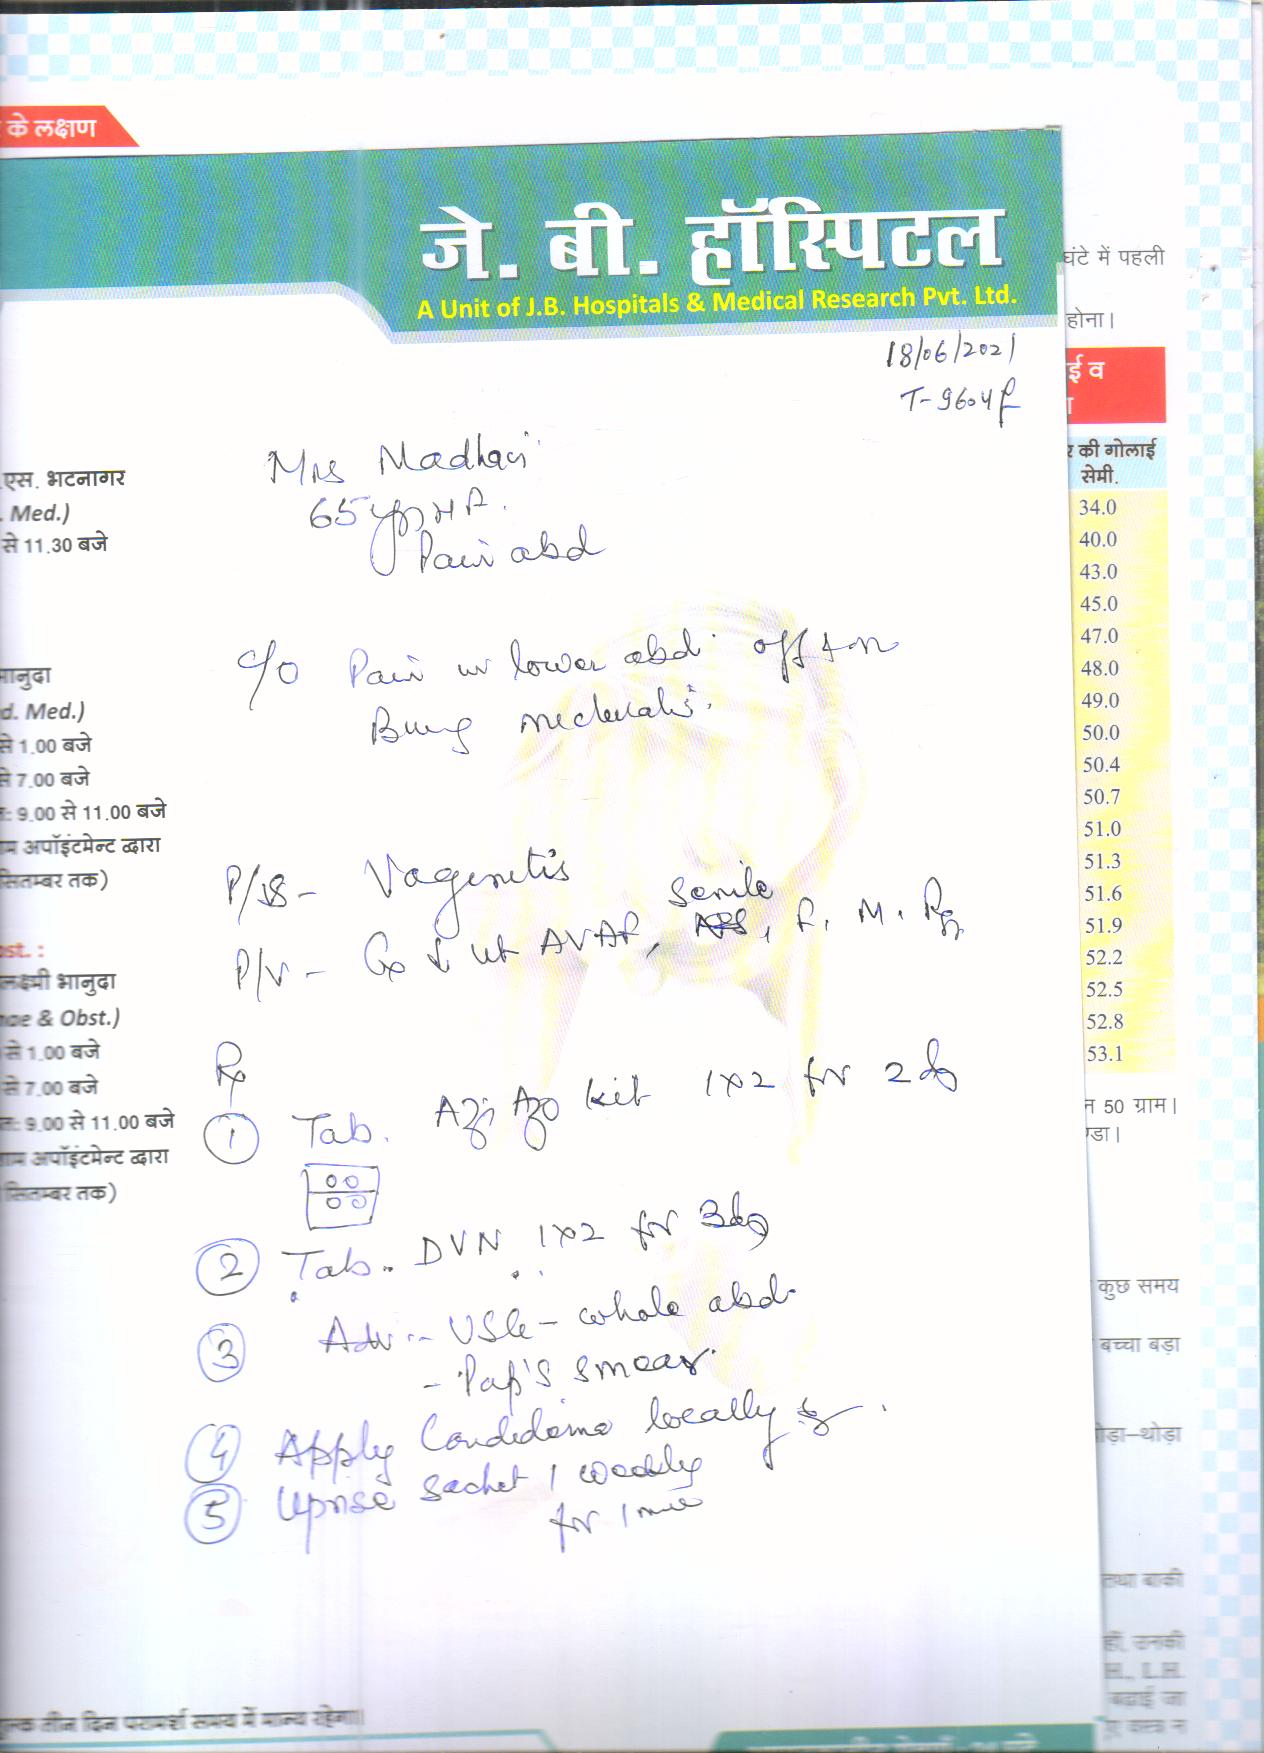 के लक्षण
जे. बी. हॉस्पिटल
A Unit of J.B. Hospitals & Medical Research Pvt. Ltd.
18/06/2021
T-
घंटे में पहली
होना।
ई व
र की गोलाई
सेमी.
34.0
40.0
43.0
45.0
47.0
48.0
49.0
50.0
50.4
50.7
51.0
51.3
51.6
51.9
52.2
52.5
52.8
53.1
न 50 ग्राम।
कुछ समय
बच्चा बड़ा
ोड़ा–थोड़ा
तथा बाकी
उनकी
H., L.H.
बढ़ाई जा
एस. भटनागर
. Med.)
से 11.30 बजे
भानुदा
d. Med.)
से 1.00 बजे
से 7.00 बजे
त: 9.00 से 11.00 बजे
म अपॉइंटमेन्ट द्वारा
सितम्बर तक)
ost. :
लक्ष्मी भानुदा
nae & Obst.)
से 1.00 बजे
से 7.00 बजे
त: 9.00 से 11.00 बजे
ाम अपॉइंटमेन्ट द्वारा
सितम्बर तक)
Mrs
65
Pain abd
c/o Pain in lower abd off & on
P/S - Vagenitis
Senile
P/V - Cx ut AVAF, F. M.
Rx
1 Tab. Azi Azo kit 1x2 for 2 d
2 Tab. DVN 1x2 for 3 d
3 Adv:- USG - whole abd.
- Pap's smear.
4 Apply locally
5 Uprise sachet 1 weekly
for 1
ुल्क तीन दिन परामर्श समय में मान्य रहेगा।